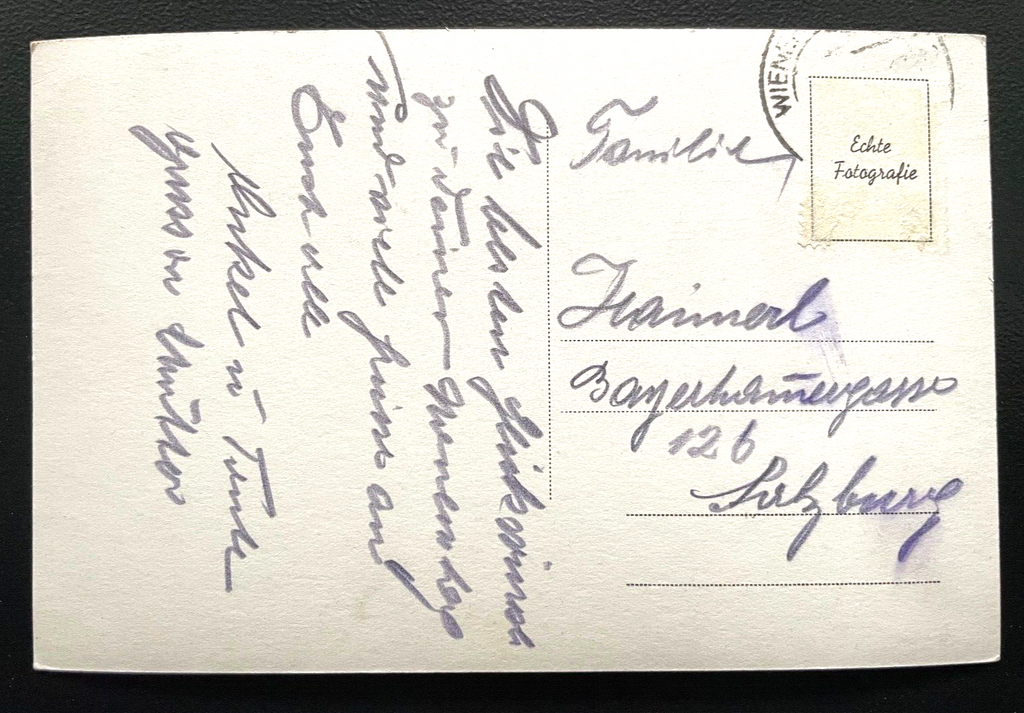 Die besten Glückwünsche
zu deinem Namenstag
und viele Grüsse an
Euch alle
Onkel u. Tante
Grüsse an
WIEN
Echte
Fotografie
Familie
Haimerl
Bayerhamergasse
12 b
Salzburg